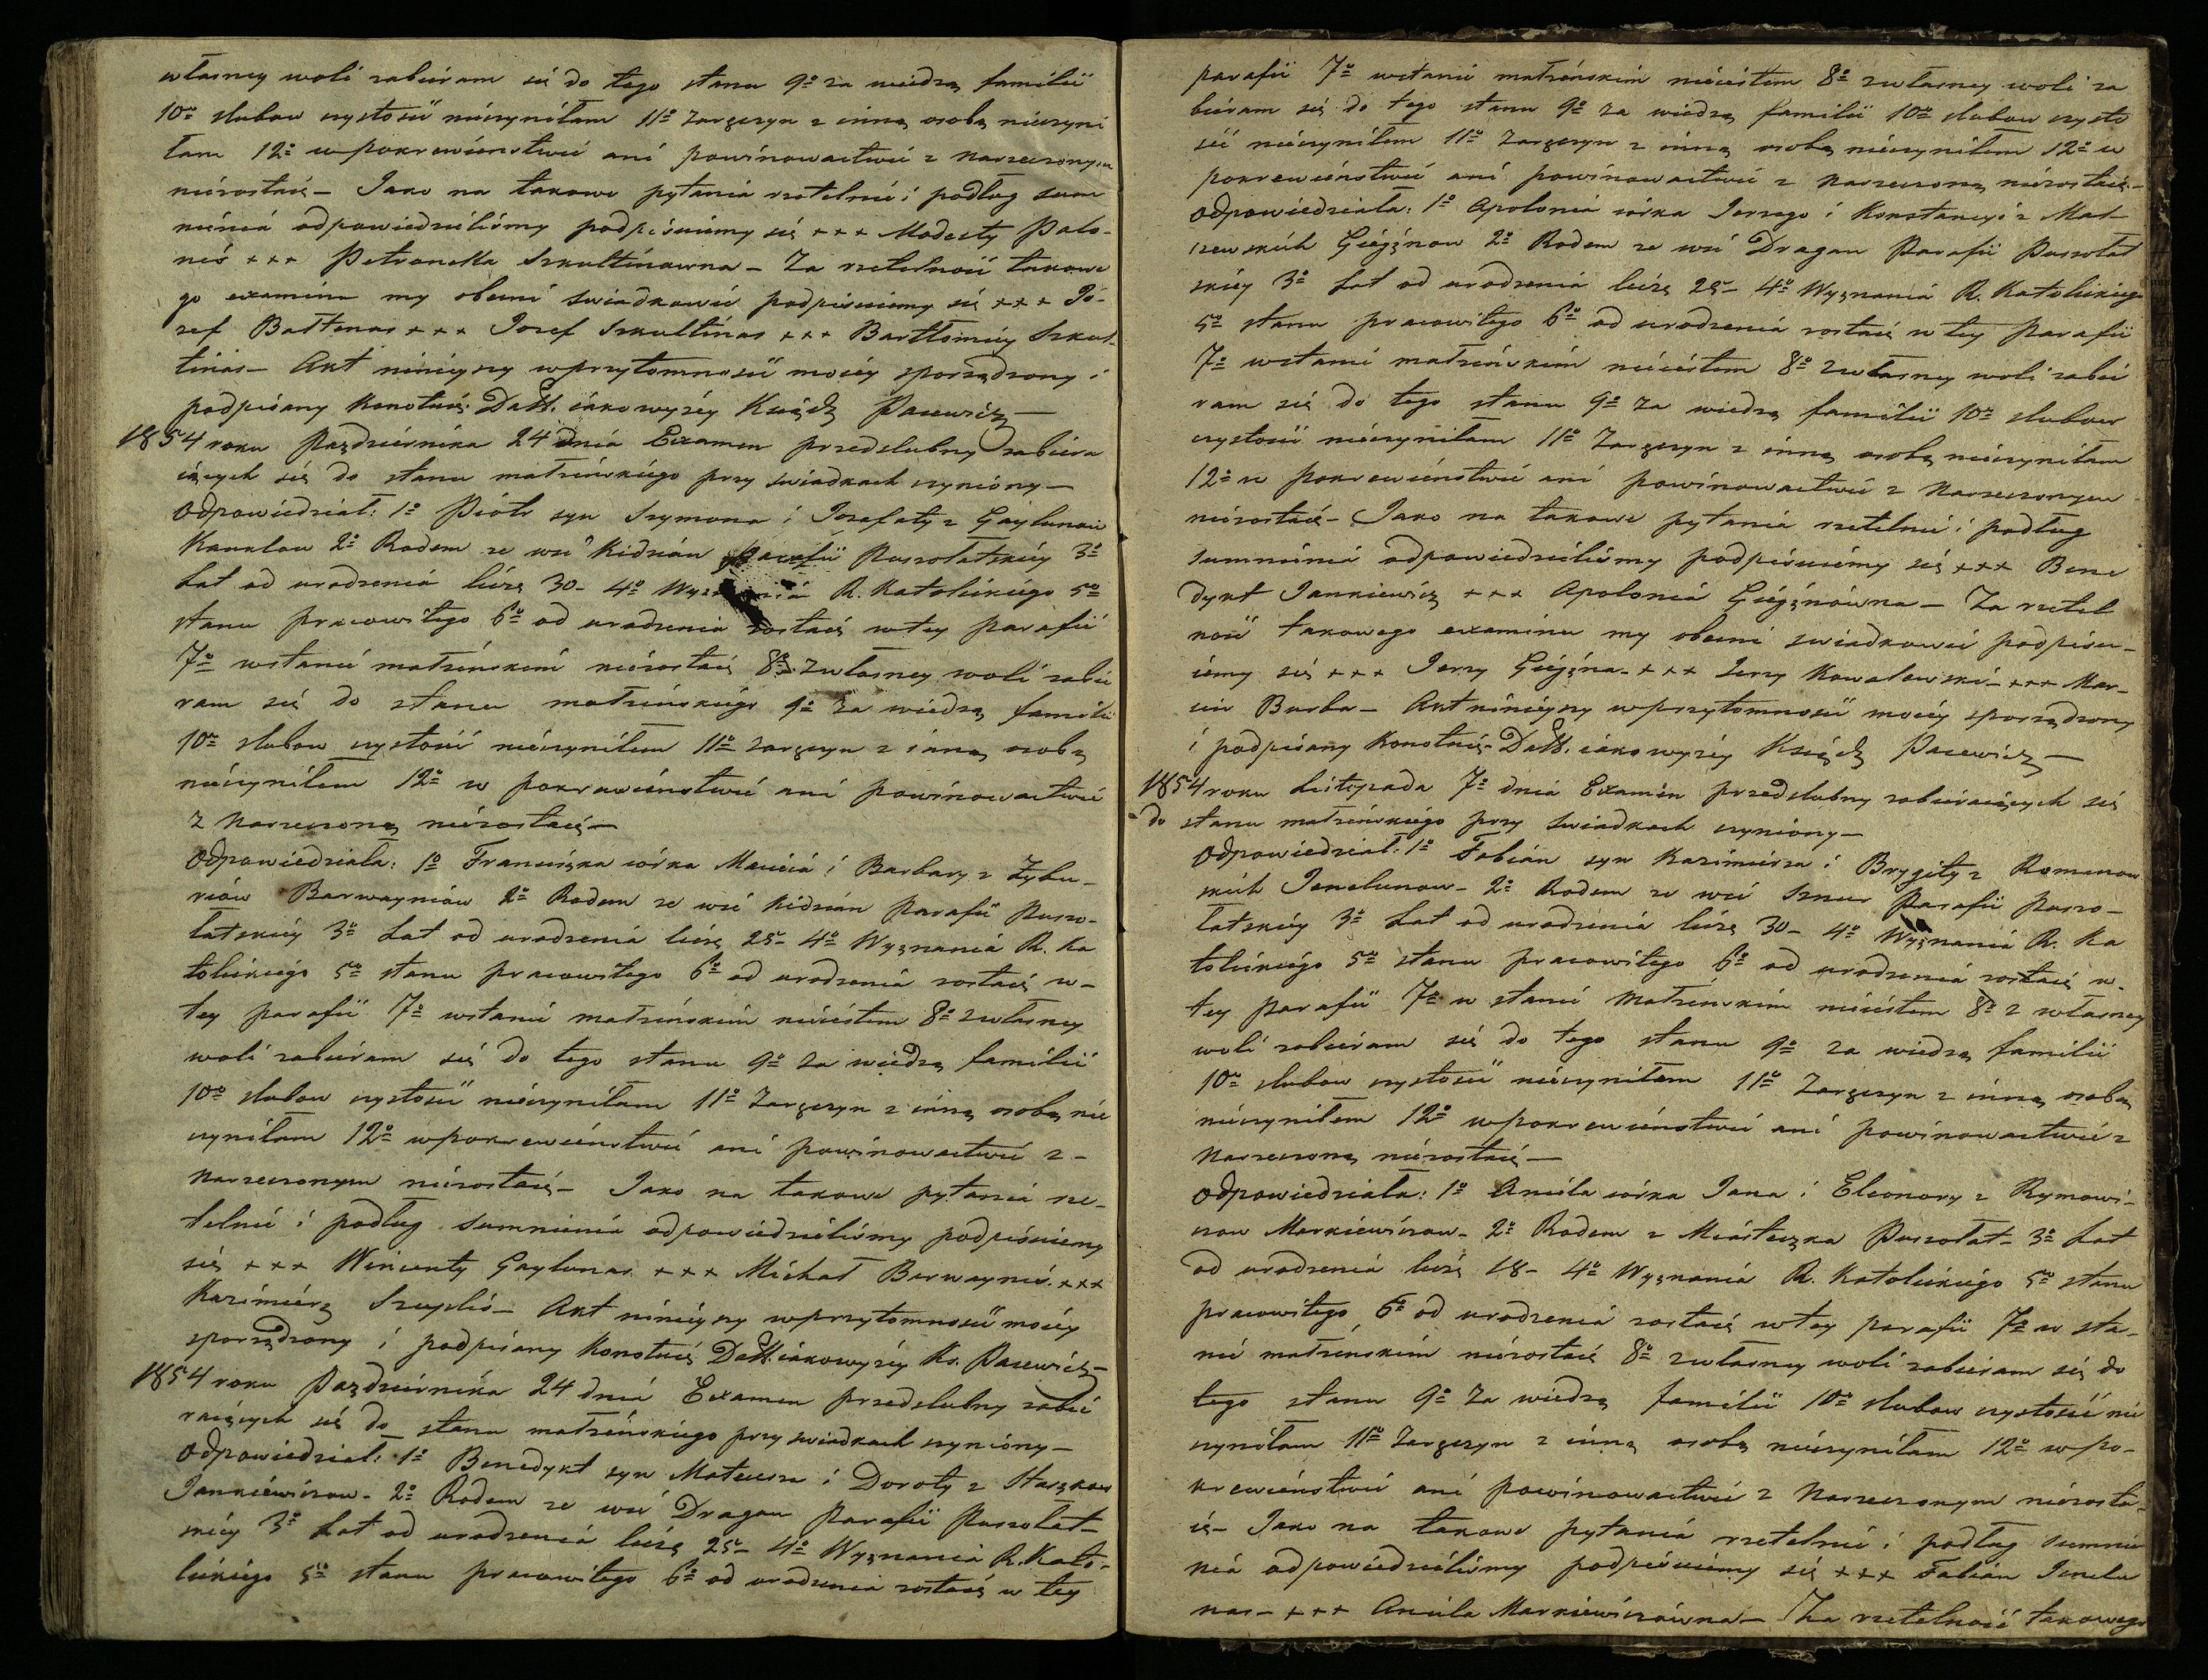 własney woli zabieram się do tego stanu 9º za wiedzą familii
10º slubow czystości nieczyniłam 11º Zaręczyn z inną osobą nieczyni
łam 12º w pokrewieństwie ani powinowactwie z narzeczonym
niezostaię – Jako na takowe pytania rzetelnie i podług sum
nienia odpowiedzieliśmy podpisuiemy się +++ Modesty Palo-
nis +++ Petronella Szkultinowna – Za rzetelność takowe
go examinu my obecni swiadkowie podpisuiemy się +++ Jó-
zef Bałtenas +++ Jozef Szkultinas +++ Bartłomiey Szkul-
tinas – Akt ninieyszy w przytomności moiey sporządzony i
podpisany Konotuię. Datt. iako wyżey Ksiądz Pacewicz –
1854 roku Pazdziernika 24 dnia Examen przedslubny zabiera
iących się do stanu małżeńskiego przy swiadkach czyniony –
Odpowiedział: 1º Piótr syn Szymona i Jozefaty z Gaylunow
2º Rodem ze wsi Kidzian Parafii Puszołatskiey 3º
Lat od urodzenia liczę 30 – 4º R. Katolickiego 5º
stanu pracowitego 6º od urodzenia zostaię w tey Parafii
7º w stanie małżeńskim niezostaię 8º z własney woli zabie
ram się do stanu małżeńskiego 9º za wiedzą familii
10º slubow czystości nieczyniłem 11º zaręczyn z inną osobą
nieczyniłem 12º w pokrewieństwie ani powinowactwie
z narzeczoną niezostaię –
Odpowiedziała: 1º Franciszka córka Macieia i Barbary z Zybu-
riów Barwayniów 2º Rodem ze wsi Kidzian Parafii Puszo-
łatskiey 3º Lat od urodzenia liczę 25 – 4º Wyznania R. Ka
tolickiego 5º stanu pracowitego 6º od urodzenia zostaię w –
tey parafii 7º w stanie małżeńskim nieiestem 8º z własney
woli zabieram się do tego stanu 9º za wiedzą familii
10º slubow czystości nieczyniłam 11º Zaręczyn z inną osobą nie
czyniłam 12º w pokrewieństwie ani powinowactwie z –
narzeczonym niezostaię – Jako na takowe pytania rze-
telnie i podług sumnienia odpowiedzieliśmy podpisuiemy
się +++ Wincenty Gaylunas +++ Michał Barwaynis +++
Kazimierz – Akt ninieyszy w przytomności moiey
sporządzony i podpisany Konotuię Datt. iako wyżey Ks. Pacewicz –
1854 roku Pazdziernika 24 dnia Examen przedslubny zabie
raiących się do stanu małżeńskiego przy swiadkach czyniony –
Odpowiedział: 1º Benedykt syn Mateusza i Doroty z
Jankiewiczow – 2º Rodem ze wsi Dragan Parafii Puszołat-
skiey 3º Lat od urodzenia liczę 25 – 4º Wyznania R. Kato-
lickiego 5º stanu pracowitego 6º od urodzenia zostaię w tey
parafii 7º w stanie małżeńskim nieiestem 8º z własney woli za
bieram się do tego stanu 9º za wiedzą familii 10º slubow czysto
ści nieczyniłem 11º Zaręczyn z inną osobą nieczyniłem 12º w
pokrewieństwie ani powinowactwie z narzeczoną niezostaię –
Odpowiedziała: 1º Apolonia córka Jerzego i Konstancyi z Mal-
szewskich 2º Rodem ze wsi Dragan Parafii Puszołat
skiey 3º Lat od urodzenia liczę 25 – 4º Wyznania R. Katolickiego
5º stanu pracowitego 6º od urodzenia zostaię w tey Parafii
7º w stanie małżeńskim nieiestem 8º z własney woli zabie
ram się do tego stanu 9º za wiedzą familii 10º slubow
czystości nieczyniłam 11º Zaręczyn z inną osobą nieczyniłam
12º w pokrewieństwie ani powinowactwie z narzeczonym
niezostaię – Jako na takowe pytania rzetelnie i podług
sumnienia odpowiedzieliśmy podpisuiemy się +++ Bene
dykt Jankiewicz +++ Apolonia – Za rzetel
ność takowego examinu my obecni swiadkowie podpisu-
iemy się +++ Jerzy +++ Jerzy Kowalewski – +++ Mar-
cin Burba – Akt ninieyszy w przytomności moiey sporządzony
i podpisany Konotuię – Datt. iako wyżey Ksiądz Pacewicz –
1854 roku Listopada 7º dnia Examin przedslubny zabieraiących się
do stanu małżeńskiego przy swiadkach czyniony –
Odpowiedział: 1º Fabian syn Kazimierza i Brygity z Romanow
skich Jenelunow – 2º Rodem ze wsi Parafii Puszo-
łatskiey 3º Lat od urodzenia liczę 30 – 4º Wyznania R. Ka
tolickiego 5º stanu pracowitego 6º od urodzenia zostaię w –
tey parafii 7º w stanie małżeńskim nieiestem 8º z własney
woli zabieram się do tego stanu 9º za wiedzą familii
10º slubow czystości nieczyniłem 11º Zaręczyn z inną osobą
nieczyniłem 12º w pokrewieństwie ani powinowactwie z
narzeczoną niezostaię –
Odpowiedziała: 1º Aniela córka Jana i Eleonory z Rymowi-
czow Markiewiczow – 2º Rodem z Miasteczka Puszołat – 3º Lat
od urodzenia liczę 18 – 4º Wyznania R. Katolickiego 5º stanu
pracowitego 6º od urodzenia zostaię w tey parafii 7º w sta-
nie małżeńskim niezostaię 8º z własney woli zabieram się do
tego stanu 9º za wiedzą familii 10º slubow czystości nie
czyniłam 11º Zaręczyn z inną osobą nieczyniłam 12º w po-
krewieństwie ani powinowactwie z narzeczonym niezosta-
ię – Jako na takowe pytania rzetelnie i podług sumnie
nia odpowiedzieliśmy podpisuiemy się +++ Fabian Jenelu
nas – +++ Aniela Markiewiczówna – Za rzetelność takowego